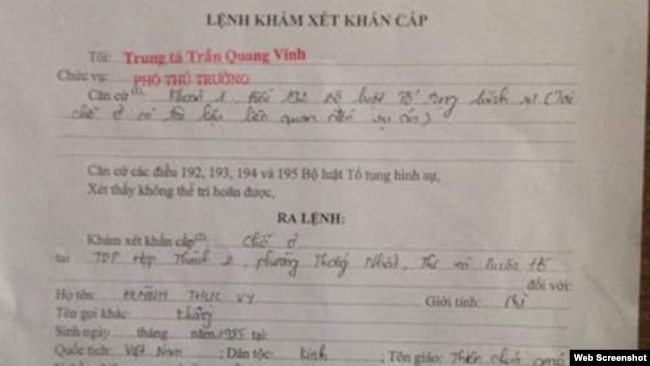 LỆNH KHÁM XÉT KHẨN CẤP
Tôi: Trung tá Trần Quang Vinh
Chức vụ: PHÓ THỦ TRƯỞNG
Căn cứ (1): Khoản 1 Điều 192 Bộ luật Tố tụng hình sự (Tại
chỗ ở có tài liệu liên quan đến vụ án)
Căn cứ các điều 192, 193, 194 và 195 Bộ luật Tố tụng hình sự,
Xét thấy không thể trì hoãn được,
RA LỆNH:
Khám xét khẩn cấp(2): Chỗ ở
tại TDP Hợp Thành 2, phường Thống Nhất, Thị xã Buôn Hồ
đối với:
Họ tên: HUỲNH THỤC VY Giới tính: Nữ
Tên gọi khác: không
Sinh ngày tháng năm 1985 tại:
Quốc tịch: Việt Nam ; Dân tộc: Kinh ; Tôn giáo: Thiên chúa giáo
Web Screenshot